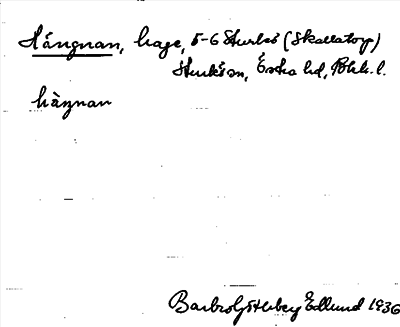 Hängnan, hage, 5-6 Sturkö (Skallatorp)
Sturkö sn, Östra hd, Blek. l.
hàŋnan
Barbro Götherberg Edlund 1936